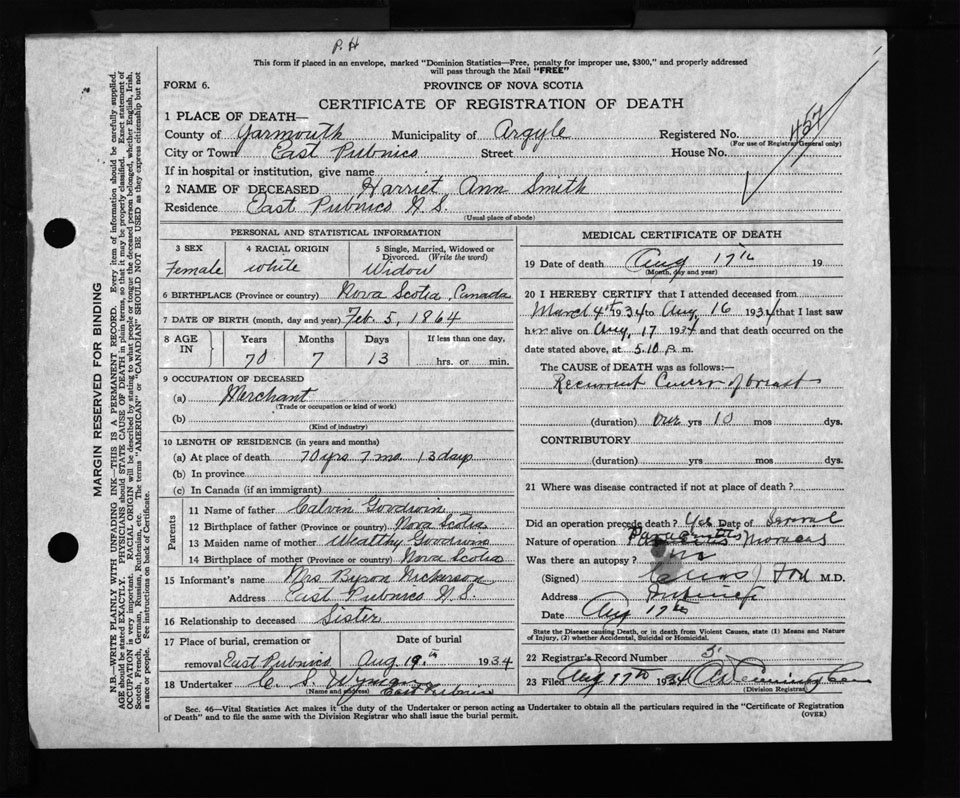 P. H
This form if placed in an envelope, marked "Dominion Statistics—Free, penalty for improper use, $300," and properly addressed
will pass through the Mail "FREE"
FORM 6.
PROVINCE OF NOVA SCOTIA
CERTIFICATE OF REGISTRATION OF DEATH
1 PLACE OF DEATH—
County of Yarmouth Municipality of Argyle Registered No. 457
(For use of Registrar General only)
City or Town East Pubnico Street House No.
If in hospital or institution, give name
2 NAME OF DECEASED Harriet Ann Smith
Residence East Pubnico N.S.
(Usual place of abode)
PERSONAL AND STATISTICAL INFORMATION
3 SEX 4 RACIAL ORIGIN 5 Single, Married, Widowed or Divorced. (Write the word)
Female white Widow
6 BIRTHPLACE (Province or country) Nova Scotia, Canada
7 DATE OF BIRTH (month, day and year) Feb. 5, 1864
8 AGE IN Years Months Days If less than one day,
70 7 13 hrs. or min.
9 OCCUPATION OF DECEASED
(a) Merchant
(Trade or occupation or kind of work)
(b)
(Kind of industry)
10 LENGTH OF RESIDENCE (in years and months)
(a) At place of death 70 yrs 7 mo 13 days
(b) In province
(c) In Canada (if an immigrant)
Parents
11 Name of father Calvin Goodwin
12 Birthplace of father (Province or country) Nova Scotia
13 Maiden name of mother Wealthy Goodwin
14 Birthplace of mother (Province or country) Nova Scotia
15 Informant's name Mrs. Byron Nickerson
Address East Pubnico N.S.
16 Relationship to deceased Sister
17 Place of burial, cremation or removal East Pubnico Date of burial Aug. 19th 1934
18 Undertaker C. S.
(Name and address) East Pubnico
MEDICAL CERTIFICATE OF DEATH
19 Date of death Aug 17th 19
(Month, day and year)
20 I HEREBY CERTIFY that I attended deceased from
March 4th 1934 to Aug 16 1934 that I last saw
her alive on Aug, 17 1934 and that death occurred on the
date stated above, at 5.10 p. m.
The CAUSE OF DEATH was as follows:—
Recurrent Cancer of breast
(duration) one yrs 10 mos dys.
CONTRIBUTORY
(duration) yrs mos dys.
21 Where was disease contracted if not at place of death?
Did an operation precede death? Yes Date of Several
Nature of operation
Was there an autopsy? no
(Signed) M.D.
Address
Date Aug 17th
State the Disease causing Death, or in death from Violent Causes, state (1) Means and Nature
of Injury, (2) whether Accidental, Suicidal or Homicidal.
22 Registrar's Record Number 5
23 Filed Aug 17th 1934
(Division Registrar)
Sec. 46—Vital Statistics Act makes it the duty of the Undertaker or person acting as Undertaker to obtain all the particulars required in the "Certificate of Registration
of Death" and to file the same with the Division Registrar who shall issue the burial permit.
(OVER)
MARGIN RESERVED FOR BINDING
N.B.—WRITE PLAINLY WITH UNFADING INK—THIS IS A PERMANENT RECORD. Every item of information should be carefully supplied.
AGE should be stated EXACTLY. PHYSICIANS should STATE CAUSE OF DEATH in plain terms, so that it may be properly classified. Exact statement of
OCCUPATION is very important. RACIAL ORIGIN will be described by stating to what people or tongue the deceased person belonged, whether English, Irish,
Scotch, French, German, Russian, Ruthenian, etc. The terms "AMERICAN" or "CANADIAN" SHOULD NOT BE USED as they express citizenship but not
a race or people. See instructions on back of Certificate.